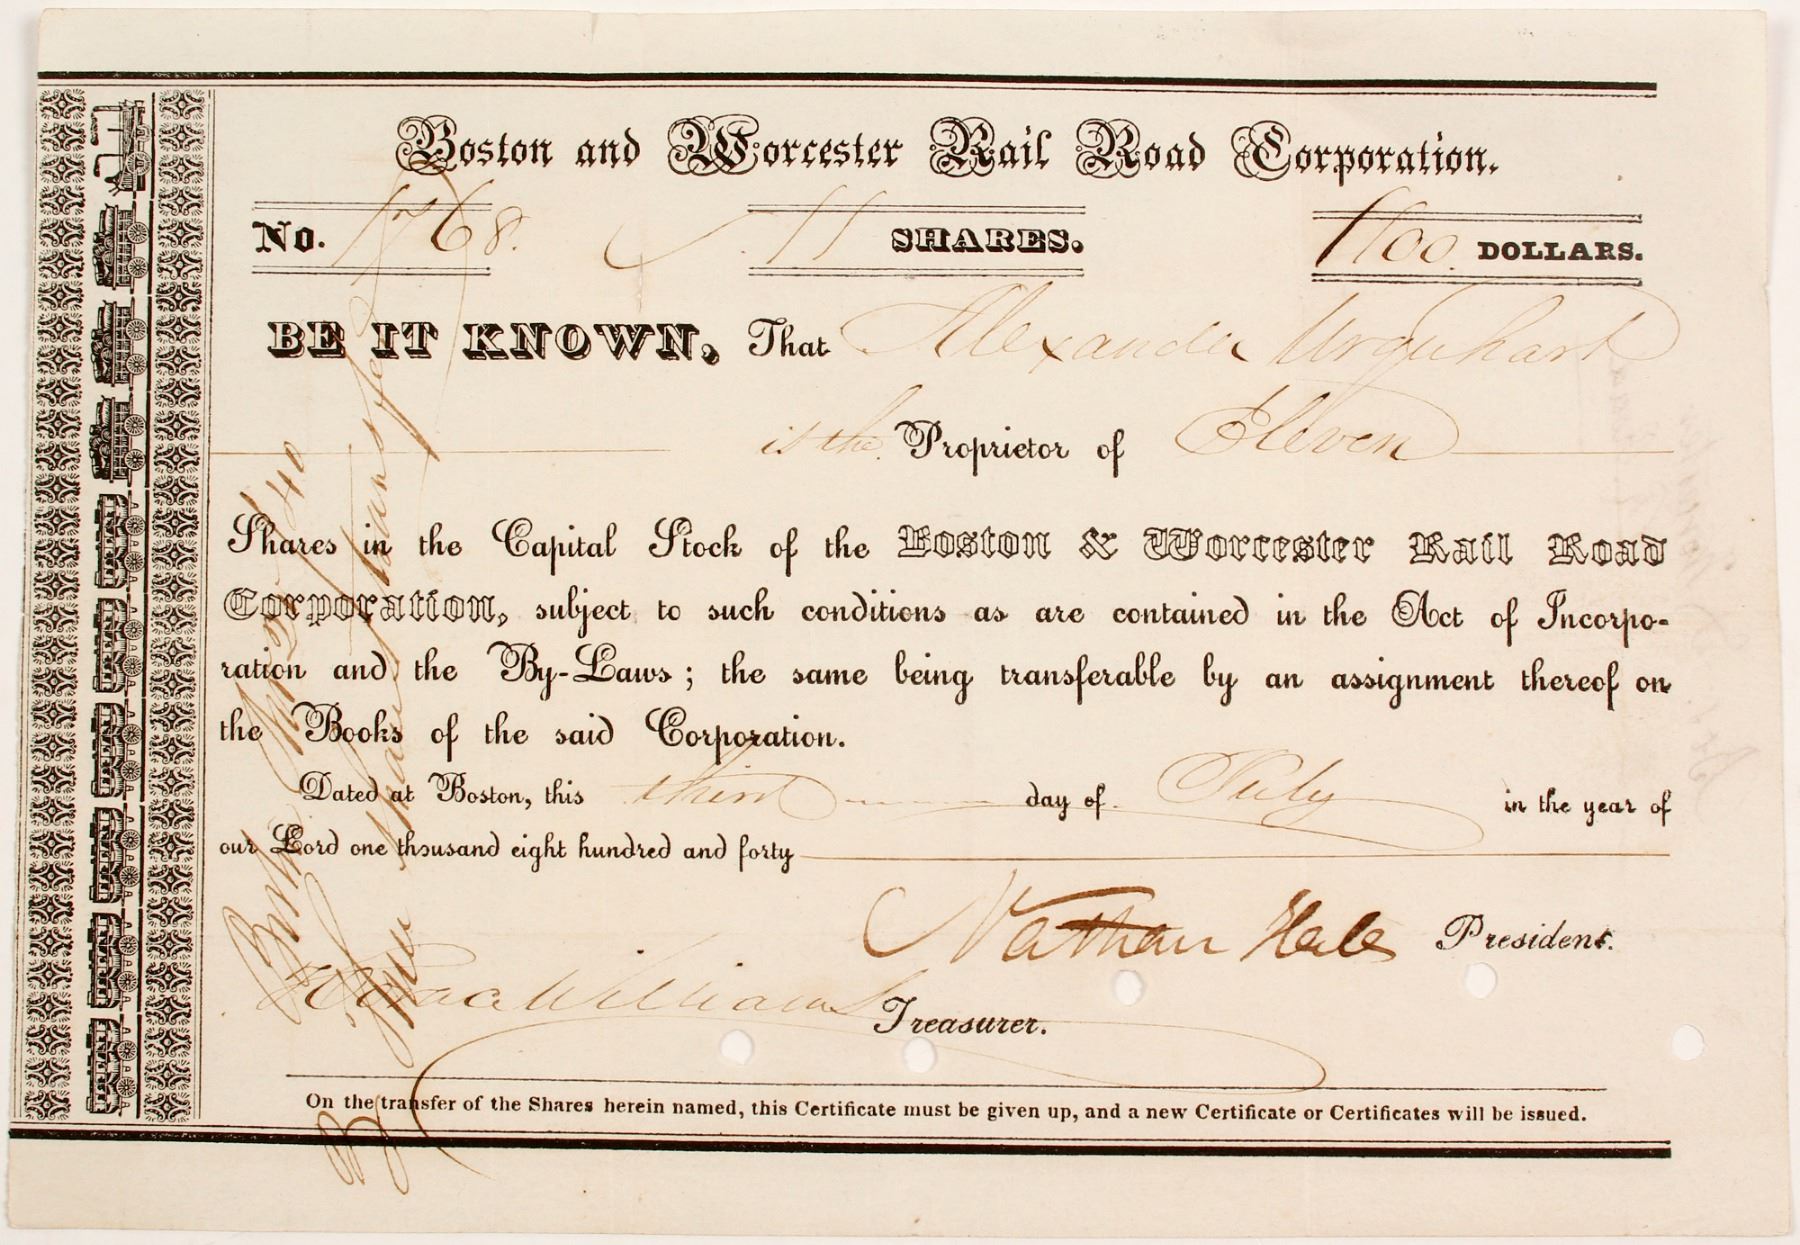 Boston and Worcester Rail Road Corporation.
No. 1768. 11 SHARES. 1100 DOLLARS.
BE IT KNOWN, That Alexander Urquhart
is the Proprietor of Eleven
Shares in the Capital Stock of the Boston & Worcester Rail Road
Corporation, subject to such conditions as are contained in the Act of Incorpo-
ration and the By-Laws; the same being transferable by an assignment thereof on
the Books of the said Corporation.
Dated at Boston, this third day of July in the year of
our Lord one thousand eight hundred and forty
Nathan Hale President.
Williams Treasurer.
On the transfer of the Shares herein named, this Certificate must be given up, and a new Certificate or Certificates will be issued.